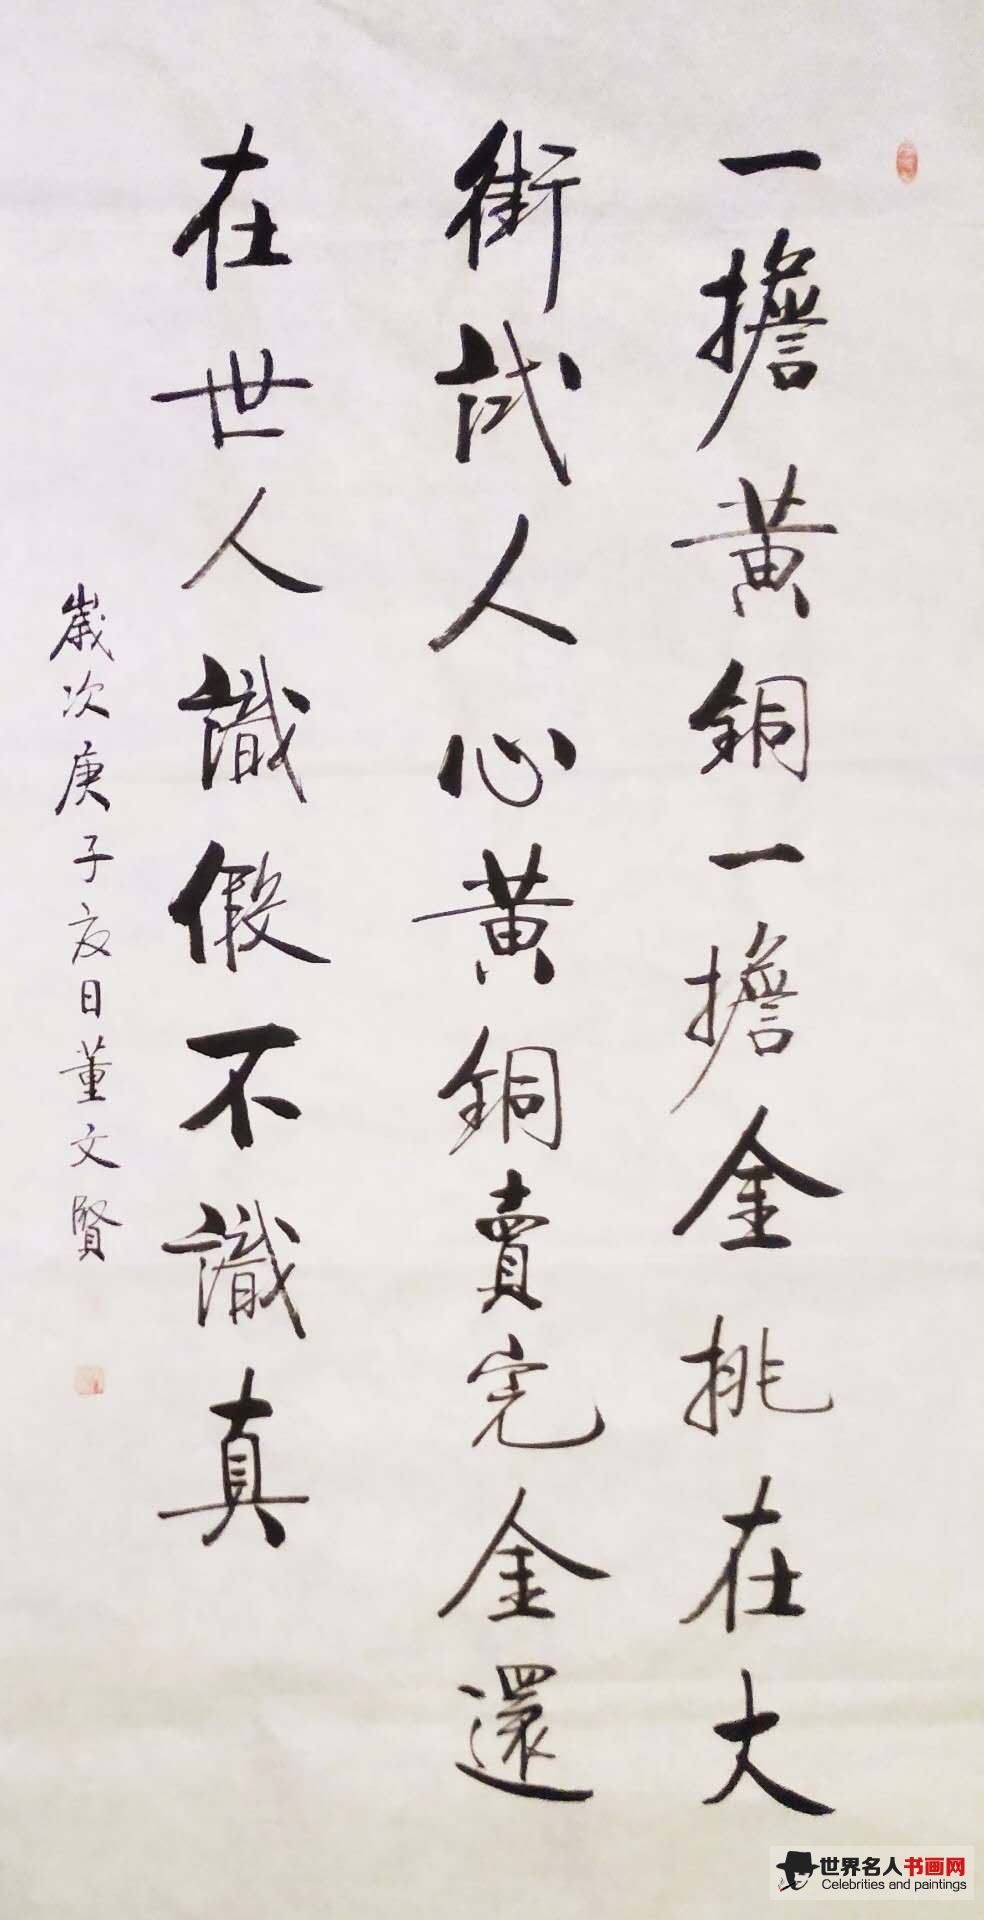 一擔黃銅一擔金挑在大
街試人心黃銅賣完金還
在世人識假不識真
歲次庚子夜日董文賢
世界名人书画网
Celebrities and paintings